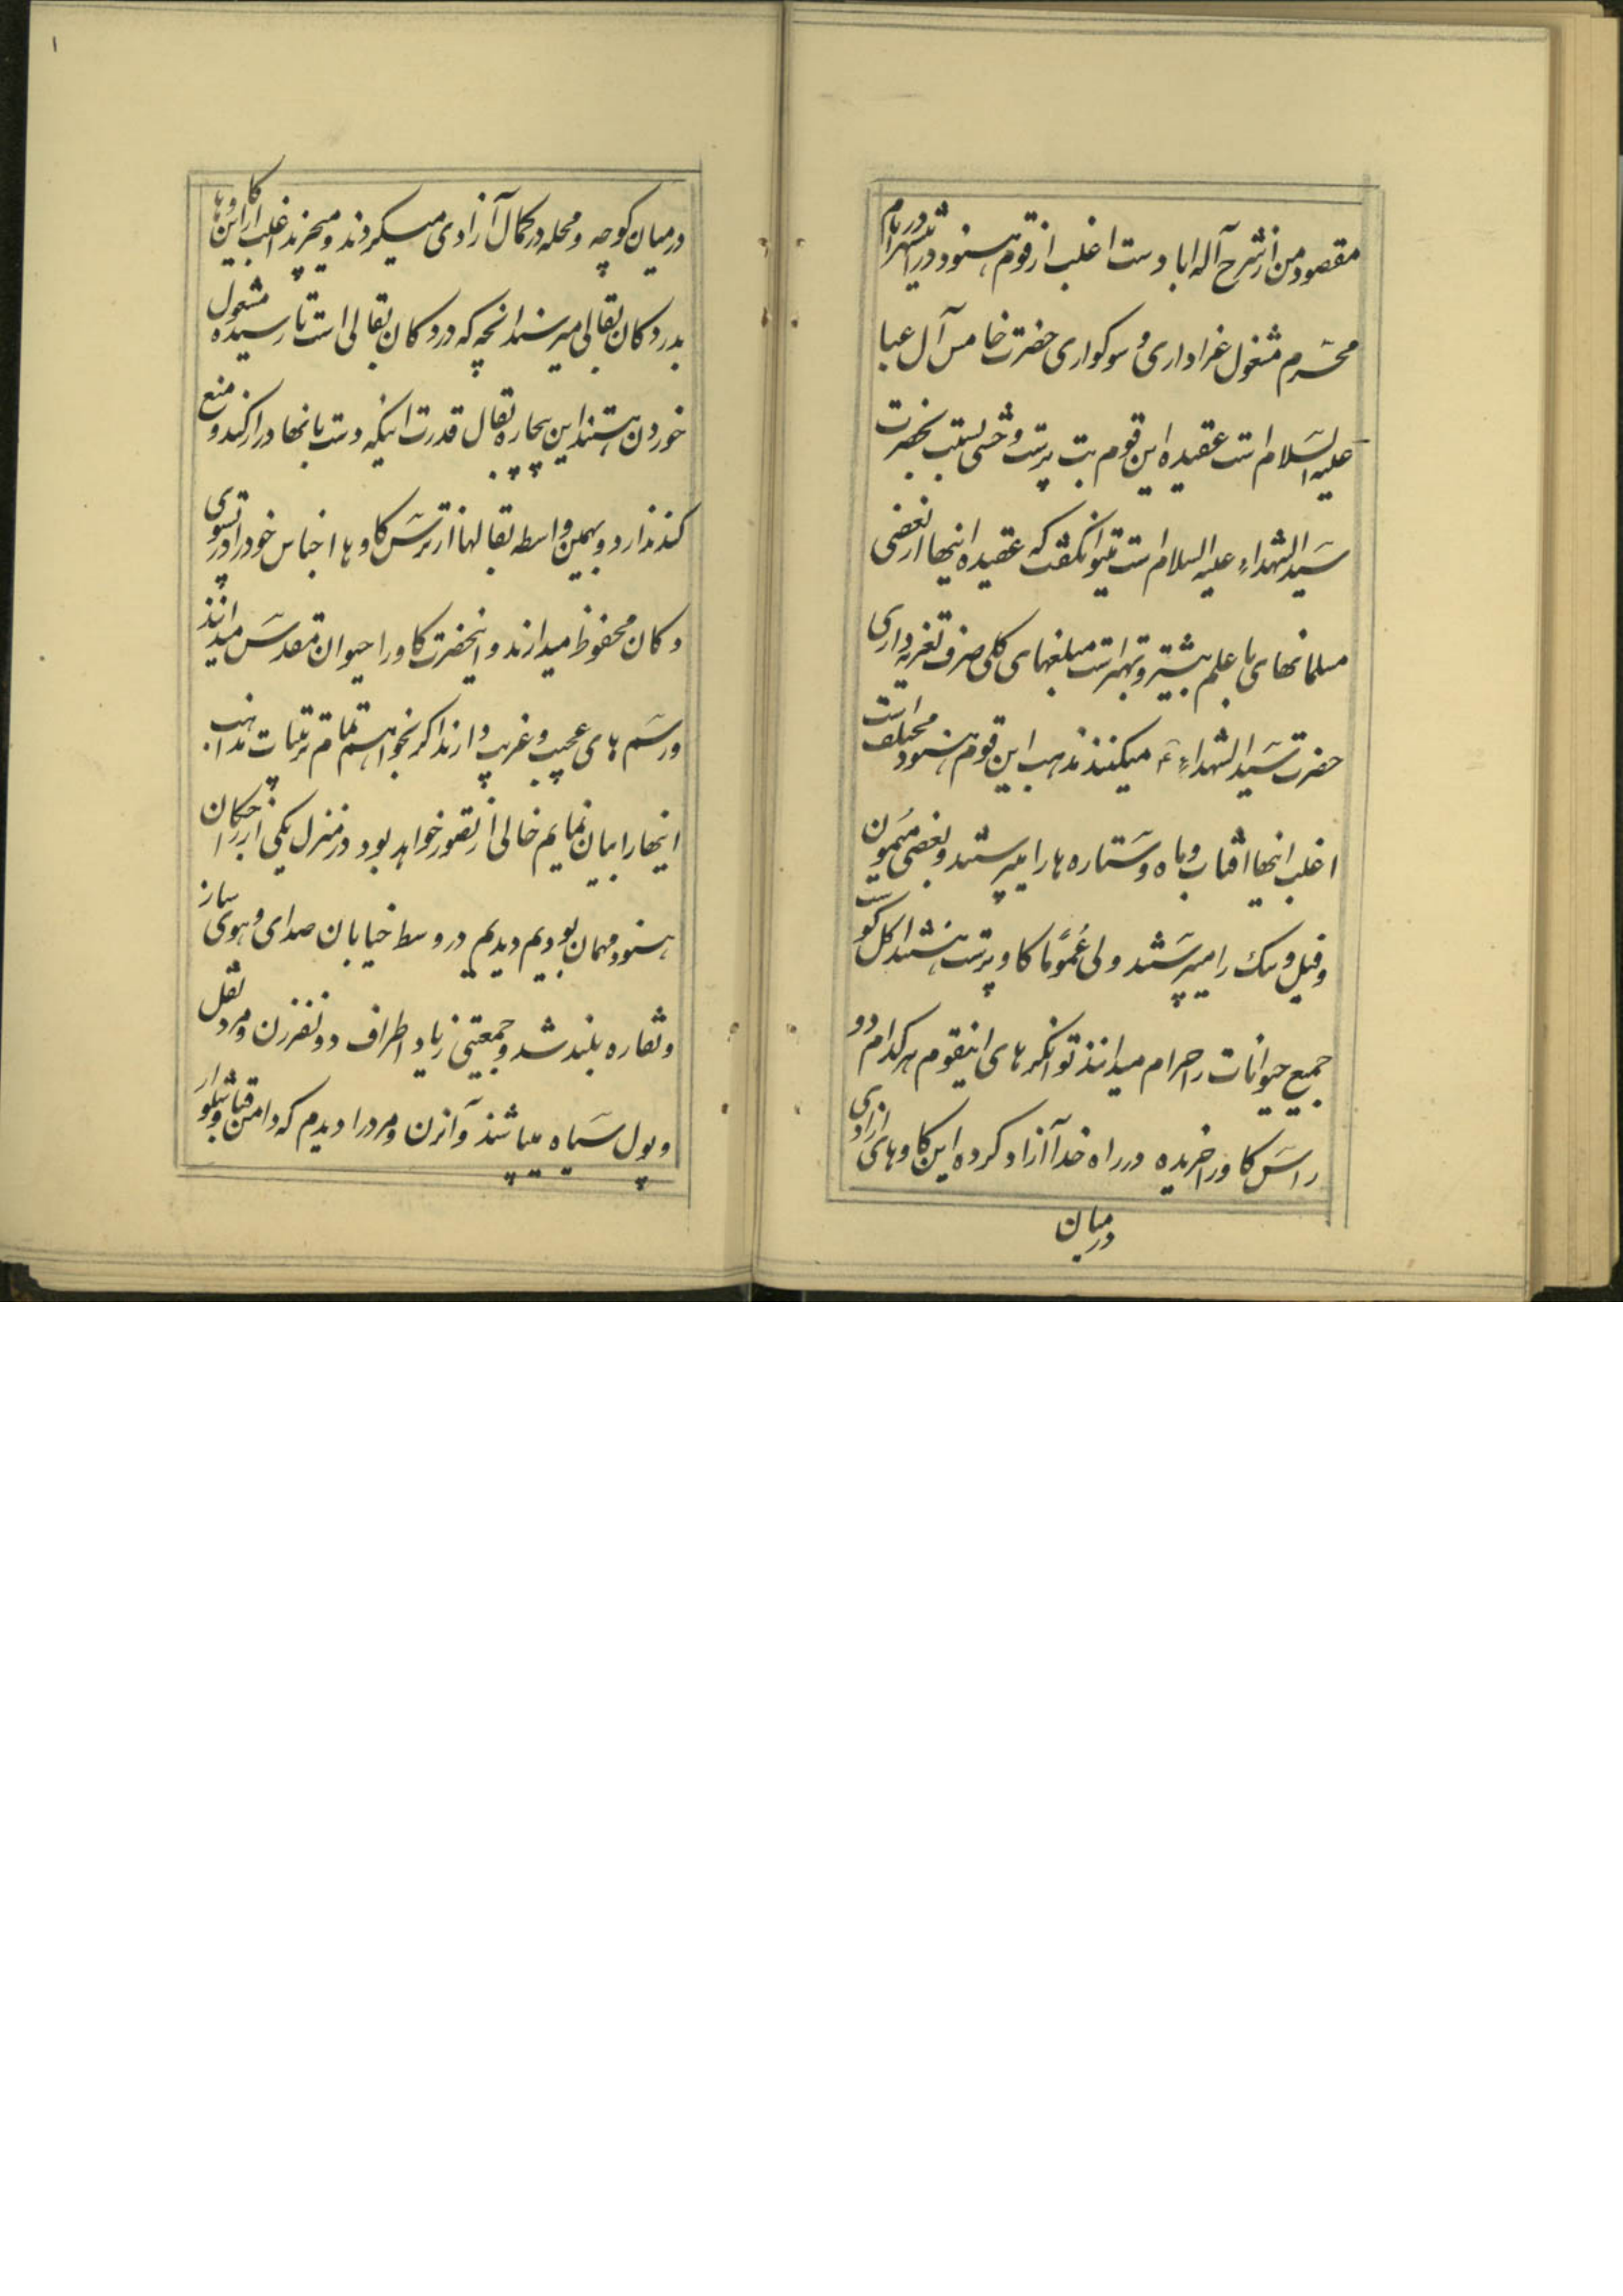 مقصود من از شرح آله اباد دست اغلب از قوم هنود در این شهر در ایام
محرّم مشغول عزاداری و سوکواری حضرت خامس آل عبا
علیه السّلام است عقیده این قوم بت پرست وحشی بنسبت بحضرت
سیّد الشهداء علیه السلام است میتوانکفت که عقیده اینها از بعضی
مسلمانهای با علم بیشتر و بهتر است مبلغهای کلی صرف تعزیه داری
حضرت سیّد الشهداء ع میکنند مذهب این قوم هنود مختلف است
اغلب انها افتاب و ماه و ستاره ها را میپرستند و بعضی میمون
و فیل و سک را میپرستند ولی عُمُوماً کاو پرست هستند اکل کوشت
جمیع حیوانات را حرام میدانند توانکر های اینقوم هر کدام دو
راس کاو را خریده در راه خدا آزاد کرده این کاوهای ازادی
درمیان
۱
در میان کوچه و محله در کمال آزادی میکردند و میچرند اغلب از این کاوها
بدر دکان بقالی میرسند انچه که در دکان بقالی است تا رسیده مشغول
خوردن هستند این بیچاره بقال قدرت اینکه دست بانها دراز کند و منع
کند ندارد و بهمین واسطه بقالها از ترس کاوها اجناس خود را در تسوی
دکان محفوظ میدارند و اینحضرت کاو را حیوان مقدس میدانند
و رسم های عجیب و غریب دارند اکر بخواهم تمام ترتیبات مذاهب
اینها را بیان نمایم خالی از تصور خواهد بود در منزل یکی از راجکان
هنود مهمان بودیم دیدیم در وسط خیابان صدای و هوی ساز
و نقاره بلند شد و جمعیتی زیاد اطراف دو نفر زن و مرد نقل
و پول سیاه میپاشند و آنزن و مرد را دیدم که دامن قبا و شلوار